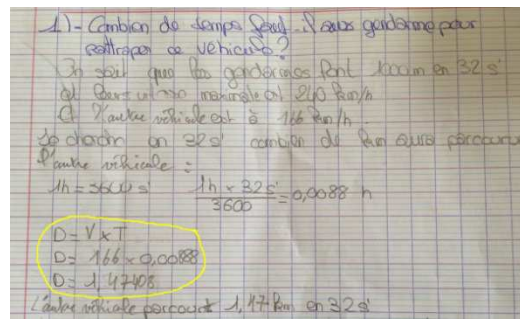 1)- Combien de temps faut-il aux gendarmes pour
rattraper ce véhicule ?
On sait que les gendarmes font 1000m en 32 s
et leur vitesse maximale est 240 km/h
et l'autre véhicule est à 166 km/h.
Je cherche en 32s combien de km aura parcouru
l'autre véhicule =
1h = 3600 s 1h x 32s / 3600 = 0,0088 h
D = V x T
D = 166 x 0,00888
D = 1,47408
L'autre véhicule parcourt 1,47 km en 32s